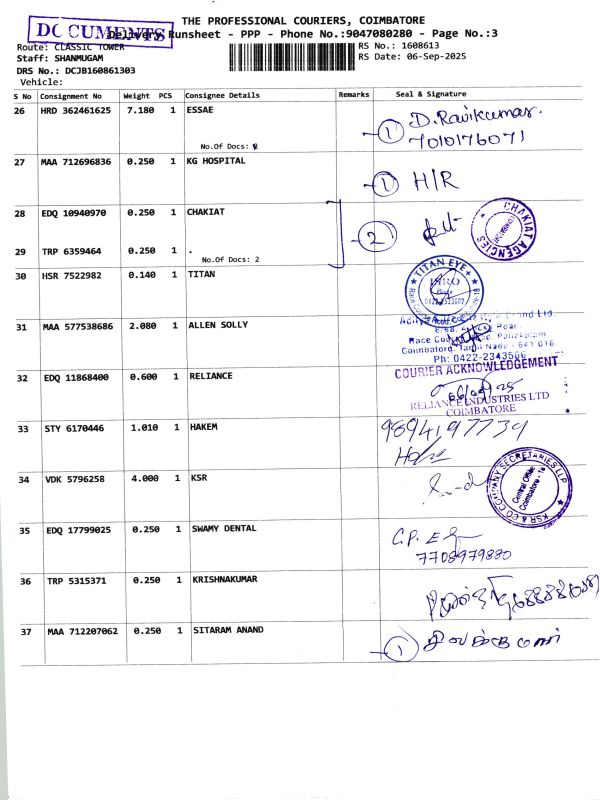 THE PROFESSIONAL COURIERS, COIMBATORE
DOCUMENTS
Delivery Runsheet - PPP - Phone No.:9047080280 - Page No.:3
Route: CLASSIC TOWER
RS No.: 1608613
Staff: SHANMUGAM
RS Date: 06-Sep-2025
DRS No.: DCJB160861303
Vehicle:
S No Consignment No Weight PCS Consignee Details Remarks Seal & Signature
26 HRD 362461625 7.180 1 ESSAE
D. Ravikumar.
1 7010176071
No.Of Docs:
27 MAA 712696836 0.250 1 KG HOSPITAL
1 H/R
28 EDQ 10940970 0.250 1 CHAKIAT
2
CHAKIAT AGENCIES
29 TRP 6359464 0.250 1 .
No.Of Docs: 2
30 HSR 7522982 0.140 1 TITAN
TITAN EYE+
31 MAA 577538686 2.080 1 ALLEN SOLLY
Race
Coimbatore, Tamil Nadu - 641 018
Ph: 0422-2343566
32 EDQ 11868400 0.600 1 RELIANCE
COURIER ACKNOWLEDGEMENT
RELIANCE INDUSTRIES LTD
COIMBATORE
33 STY 6170446 1.010 1 HAKEM
9894197739
34 VDK 5796258 4.000 1 KSR
KSR & CO COMPANY SECRETARIES LLP
Central Office
Coimbatore - 18
35 EDQ 17799025 0.250 1 SWAMY DENTAL
C.P.
7708979880
36 TRP 5315371 0.250 1 KRISHNAKUMAR
37 MAA 712207062 0.250 1 SITARAM ANAND
1